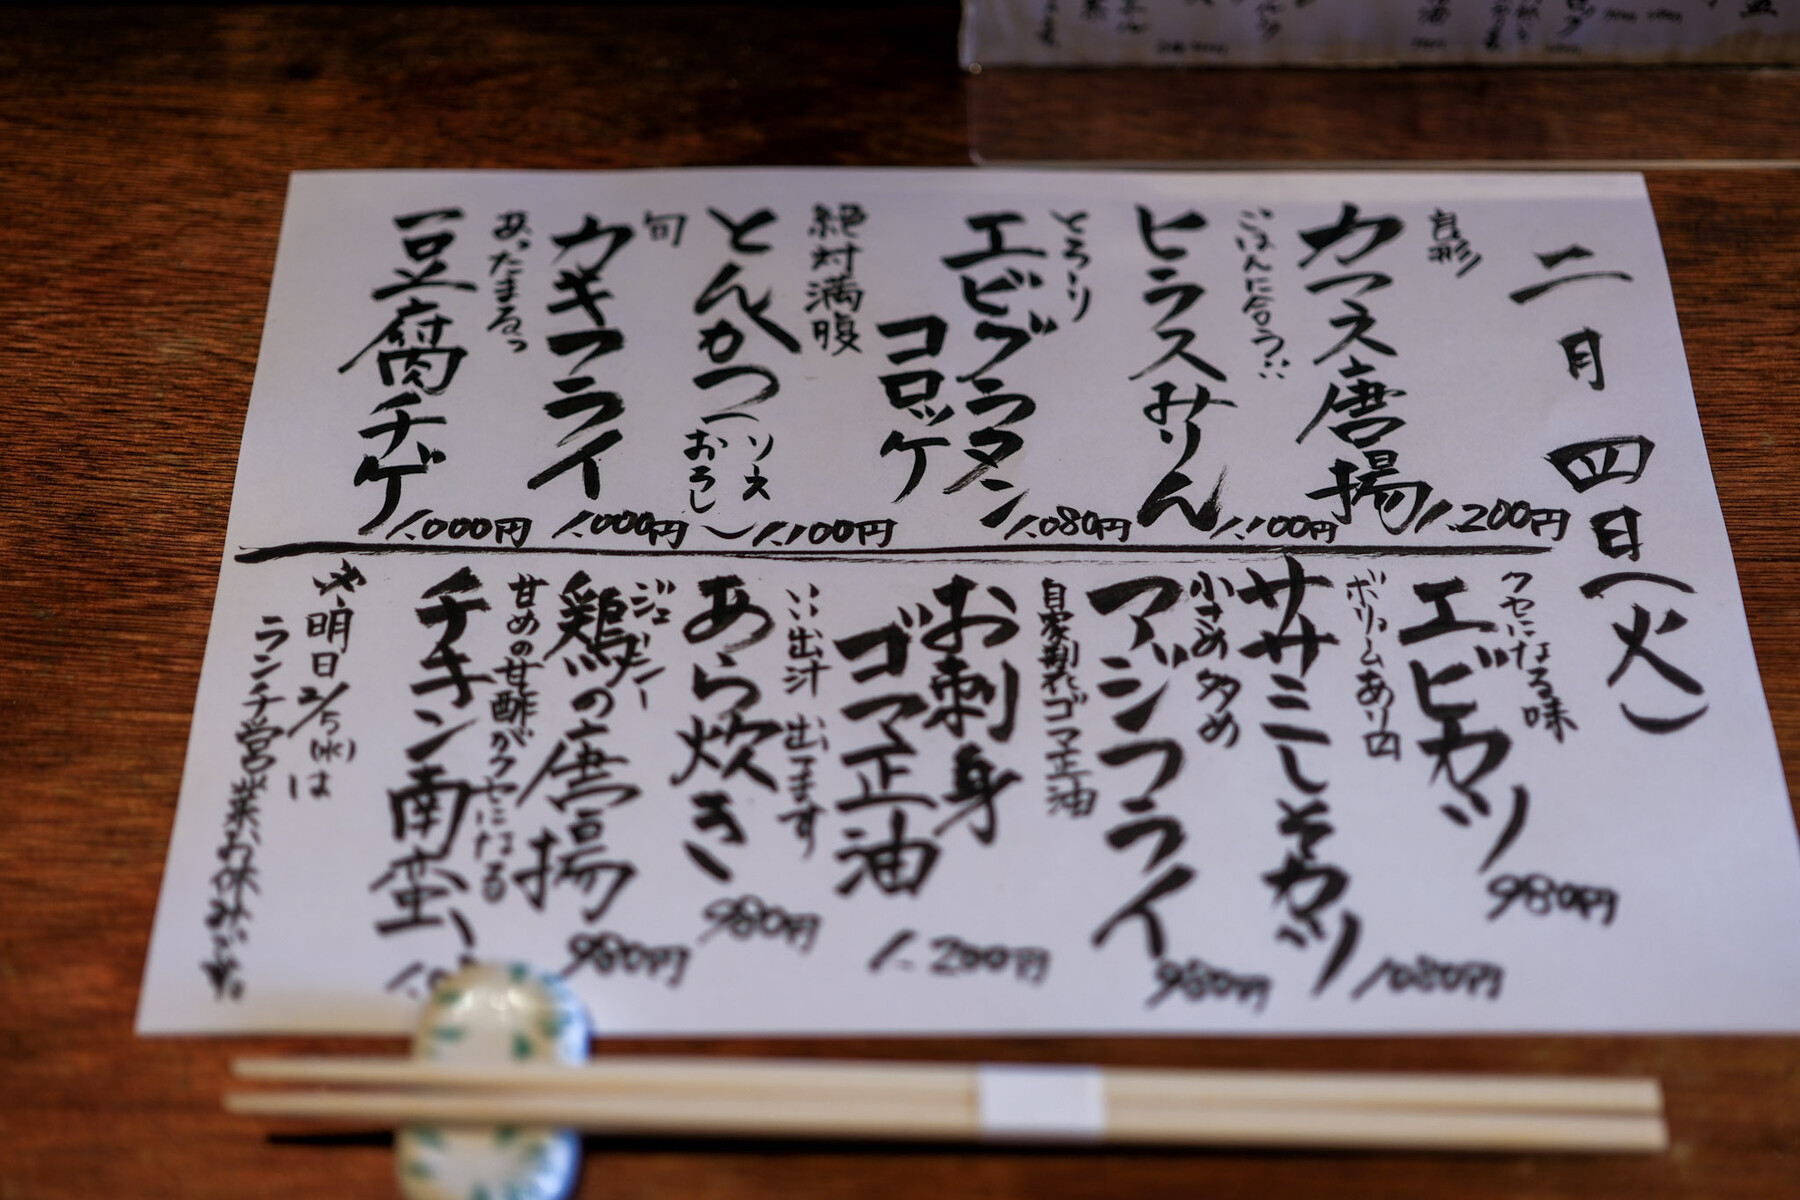 二月四日(火)
良形
カマス唐揚
1,200円
ごはんに合う‥
ヒラスみりん
1,100円
とろ〜り
エビグラタン
コロッケ
1,080円
絶対満腹
とんかつ(ソース
おろし)
1,100円
旬
カキフライ
1,000円
あったまるっ
豆腐チゲ
1,000円
クセになる味
エビカツ
980円
ボリュームあり〼
ササミしそカツ
1080円
小さめ多め
アジフライ
980円
自家製ゴマ正油
お刺身
ゴマ正油
1,200円
いい出汁 出てます
あら炊き
980円
ジューシー
鶏の唐揚
980円
甘めの甘酢がクセになる
チキン南蛮
※明日2/5(水)は
ランチ営業お休みです。